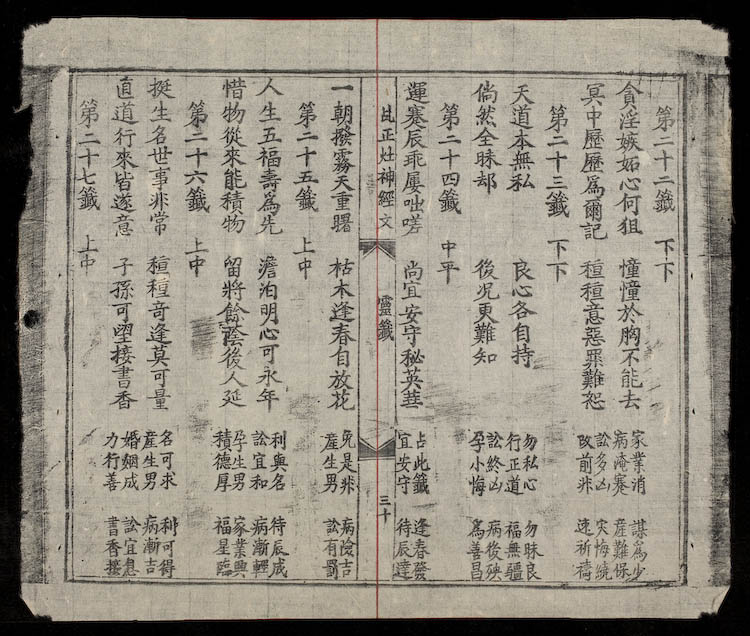 第二十二籤 下下
貪淫嫉妬心何狙 憧憧於胸不能去
家業消 謀為少
病淹蹇 產難保
訟多凶 灾悔繞
改前非 速祈禱
冥中歷歷爲爾記 種種意惡罪難恕
第二十三籤 下下
天道本無私 良心各自持
勿私心 勿昧良
行正道 福無疆
訟終凶 病後殃
孕小悔 爲善昌
倘然全昧却 後况更難知
第二十四籤 中平
運蹇辰乖屢咄嗟 尚宜安守秘英華
占此籤 逢春發
宜安守 待辰達
真正灶神經文 靈籤 三十
一朝撥霧天重曙 枯木逢春自放花
免是非 病險吉
產生男 訟有罰
第二十五籤 上中
人生五福壽爲先 澹泊明心可永年
利與名 待辰成
訟宜和 病漸輕
孕生男 家業興
積德厚 福星臨
惜物從來能積物 留將餘蔭後人延
第二十六籤 上中
挺生名世事非常 種種奇逢莫可量
名可求 利可得
產生男 病漸吉
婚姻成 訟宜息
力行善 書香接
直道行來皆遂意 子孫可望接書香
第二十七籤 上中